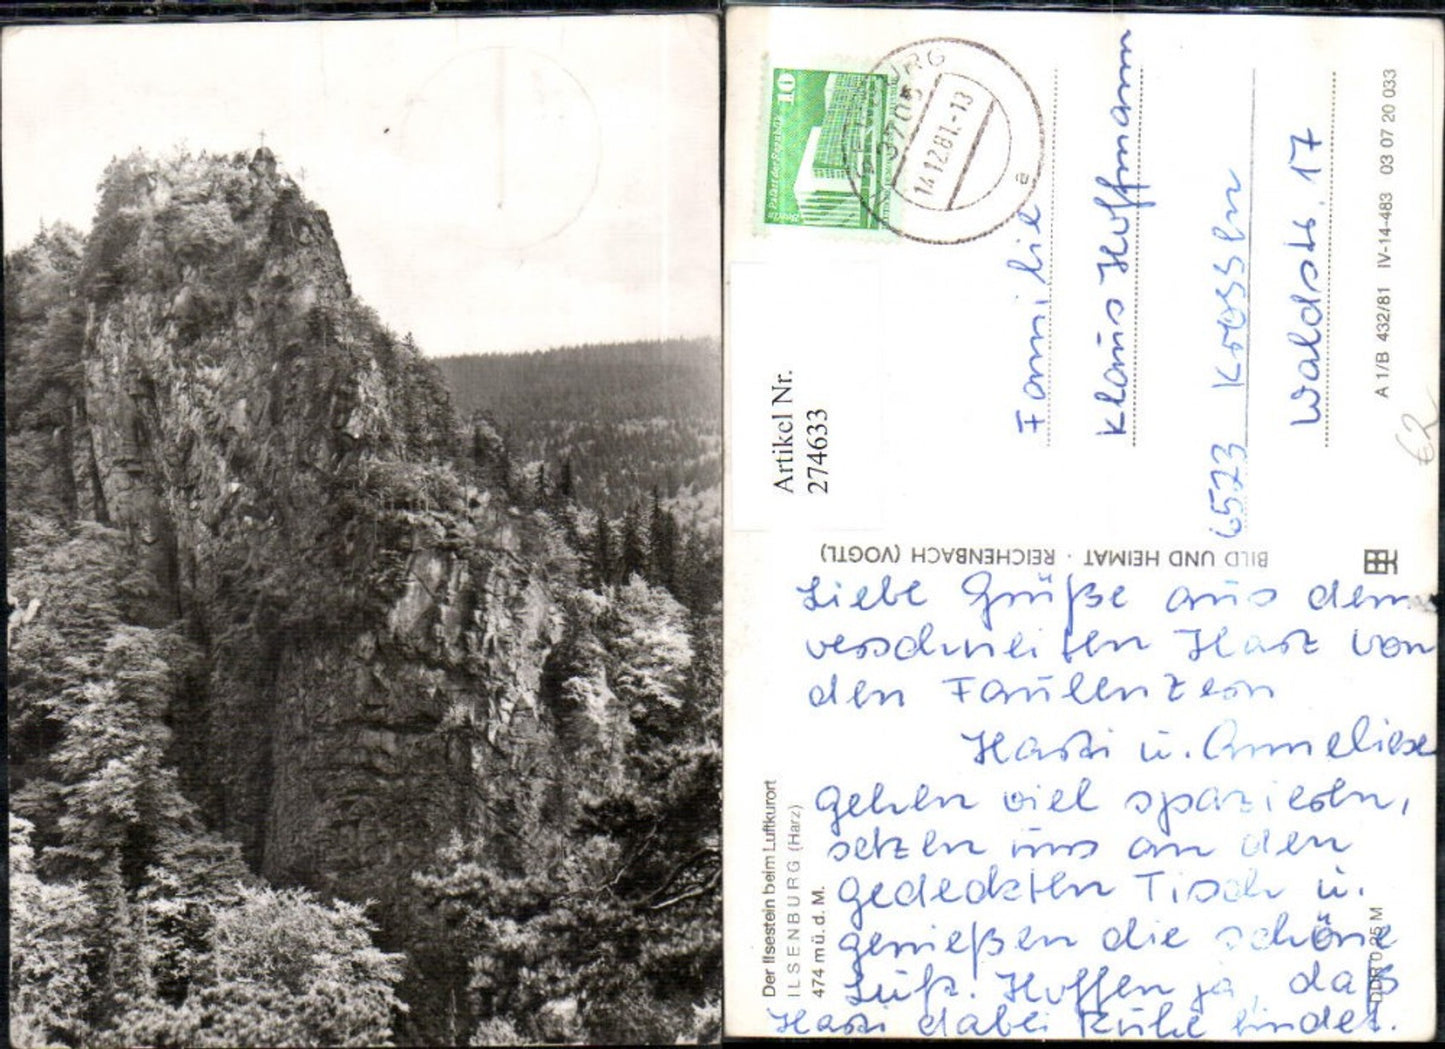 10
Palast der Republik
Berlin
3705
14.12.81.-13
a
Familie
Klaus Hoffmann
6523 Krossen
Waldstr. 17
A 1/B 432/81 IV-14-483 03 07 20 033
€2
Artikel Nr.
274633
BILD UND HEIMAT · REICHENBACH (VOGTL)
Liebe Grüße aus dem
verschneiten Harz von
den Faulenzern
Harri u. Anneliese
gehen viel spazieren,
setzen uns an den
gedeckten Tisch u.
genießen die schöne
Luft. Hoffen ja, daß
Harri dabei Ruhe findet.
Der Ilsestein beim Luftkurort
ILSENBURG (Harz)
474 m ü. d. M.
DDR 0,25 M